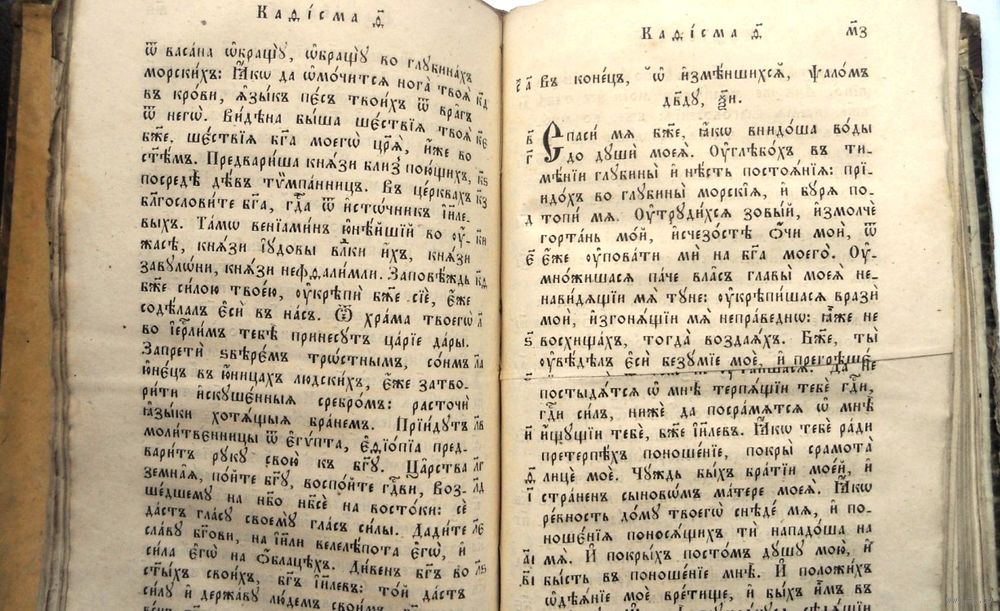 Каѳі́сма ѳ҃
ѿ васа́на ѡ҆бращꙋ̀, ѡ҆бращꙋ̀ во глꙋбина́хъ
морски́хъ: Ꙗ҆́кѡ да ѡ҆мо́чится нога̀ твоѧ̀ к҃д
въ кро́ви, ѧ҆зы́къ пє́съ твои́хъ ѿ вра̑гъ
ѿ негѡ̀. Ви́дѣна бы́ша шє́ствїѧ твоѧ̑ к҃є
бж҃е, шє́ствїѧ бг҃а моегѡ̀ цр҃ѧ̀, и҆́же во
ст҃ѣ́мъ. Предвари́ша кнѧ̑зи бли́з̾ пою́щихъ, к҃ѕ
посредѣ̀ дѣ́въ тѷмпа̑нницъ. Въ це́рквахъ к҃з
благослови́те бг҃а, гдⷭ҇а ѿ и҆сто́чникъ і҆и҃ле-
выхъ. Та́мѡ венїамі́нъ ю҆нѣ́йшїй во ᲂу҆́- к҃и
жасѣ, кнѧ̑зи і҆ꙋ́дѡвы влⷣки и҆́хъ, кнѧ̑зи
завꙋлѡ̑ни, кнѧ̑зи неѳѳалі̑мли. Заповѣ́ждь к҃ѳ
бж҃е си́лою твое́ю, ᲂу҆крѣпѝ бж҃е сїѐ, є҆́же
содѣ́лалъ є҆сѝ въ на́съ. Ѿ хра́ма твоегѡ̀ л҃
во і҆ерⷭ҇ли́мъ тебѣ̀ принесꙋ́тъ ца́рїе да́ры.
Запретѝ ѕвѣрє́мъ трѡ́стнымъ, со́нмъ л҃а
ю҆нє́цъ въ ю҆́ницахъ людски́хъ, є҆́же затво-
ри́ти и҆скꙋшє́нныѧ сребро́мъ: расточѝ
ꙗ҆зы́ки хотѧ́щыѧ бра́немъ. Прїи́дꙋтъ л҃в
моли́твенницы ѿ є҆гѵ́пта, є҆ѳїо́пїа пред-
вари́тъ рꙋ́кꙋ свою̀ къ бг҃ꙋ. Ца̑рства л҃г
земна̑ѧ, по́йте бг҃ꙋ, воспо́йте гдⷭ҇ви, Воз- л҃д
ше́дшемꙋ на нб҃о нб҃сѐ на восто́ки: сѐ
да́стъ гла́сꙋ своемꙋ̀ гла́съ си́лы. Дади́те л҃є
сла́вꙋ бг҃ови, на і҆и҃ли велелѣ́пота є҆гѡ̀, и҆
си́ла є҆гѡ̀ на ѻ҆́блацѣхъ. Ди́венъ бг҃ъ во л҃ѕ
ст҃ы́хъ свои́хъ, бг҃ъ і҆и҃левъ: то́й да́стъ
си́лꙋ и҆ держа́вꙋ лю́демъ свои̑мъ
Каѳі́сма ѳ҃ м҃з
ѯ҃ а҃ Въ коне́цъ, ѡ҆ и҆змѣ́ншихсѧ, ѱало́мъ
дв҃дꙋ, ѯ҃и.
в҃ Спаси́ мѧ бж҃е, ꙗ҆́кѡ внидо́ша во́ды
г҃ до дꙋшѝ моеѧ̀. Оу҆глѣбо́хъ въ ти-
мѣ́нїи глꙋбины̀ и҆ нѣ́сть постоѧ́нїѧ: прї-
идо́хъ во глꙋбины̑ морскі̑ѧ, и҆ бꙋ́рѧ по-
д҃ топи́ мѧ. Оу҆трꙋди́хсѧ зовы́й, и҆змолчѐ
горта́нь мо́й, и҆счезо́стѣ ѻ҆́чи моѝ, ѿ
є҃ є҆́же ᲂу҆пова́ти мѝ на бг҃а моего̀. Оу҆-
мно́жишасѧ па́че вла̑съ главы̀ моеѧ̀ не-
нави́дѧщїи мѧ̀ тꙋ́не: ᲂу҆крѣпи́шасѧ вразѝ
моѝ, и҆згонѧ́щїи мѧ̀ непра́веднѡ: ꙗ҆̀же не
ѕ҃ восхища́хъ, тогда̀ воздаѧ́хъ. Бж҃е, ты̀
ᲂу҆вѣ́дѣлъ є҆сѝ безꙋ́мїе моѐ, и҆ прегрѣше-
Да не
постыдѧ́тсѧ ѡ҆ мнѣ̀ терпѧ́щїи тебѐ гдⷭ҇и,
гдⷭ҇и си́лъ, нижѐ да посра́мѧтсѧ ѡ҆ мнѣ̀
и҃ и҆́щꙋщїи тебѐ, бж҃е і҆и҃левъ. Ꙗ҆́кѡ тебѐ ра́ди
претерпѣ́хъ поноше́нїе, покры̀ срамота̀
ѳ҃ лицѐ моѐ. Чꙋ́ждь бы́хъ бра́тїи мое́й, и҆
і҃ стра́ненъ сыновѡ́мъ ма́тере моеѧ̀. Ꙗ҆́кѡ
ре́вность до́мꙋ твоегѡ̀ снѣ́де мѧ̀, и҆ по-
ношє́нїѧ поносѧ́щихъ тѝ нападо́ша на
а҃і мѧ̀. И҆ покры́хъ посто́мъ дꙋ́шꙋ мою̀, и҆
в҃і бы́сть въ поноше́нїе мнѣ̀. И҆ положи́хъ
ѡ҆дѣѧ́нїе моѐ вре́тище, и҆ бы́хъ и҆̀мъ въ